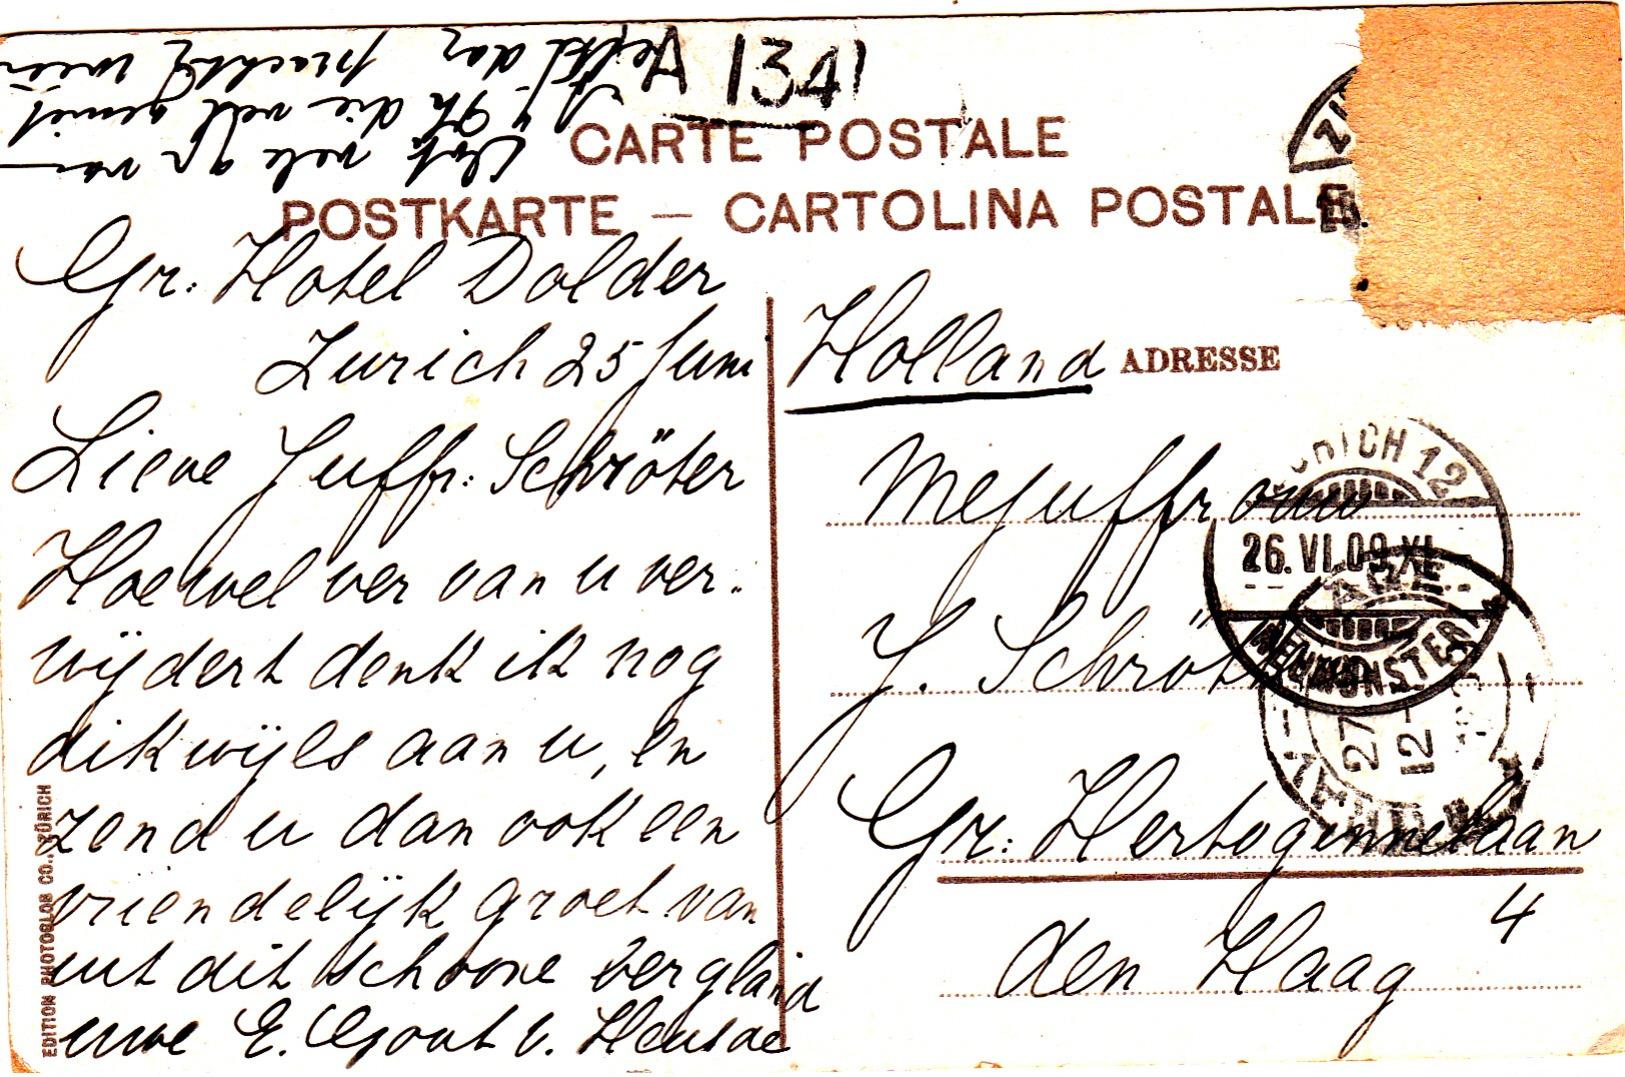 A 1341
CARTE POSTALE
POSTKARTE — CARTOLINA POSTALE
Gr: Hotel Dolder
Zurich 25 Juni
Lieve Juffr: Schröter
Hoewel ver van u ver-
wijderd denk ik nog
dikwijls aan u, en
zend u dan ook een
vriendelijk groet van
uit dit schoone bergland
uwe E.
v.
EDITION PHOTOGLOB CO., ZÜRICH
Holland ADRESSE
Mejuffrouw
J. Schröter
Gr: Hertoginnelaan
4
den Haag
ZÜRICH 12
26.VI.09.XI
NEUMÜNSTER
27
12-